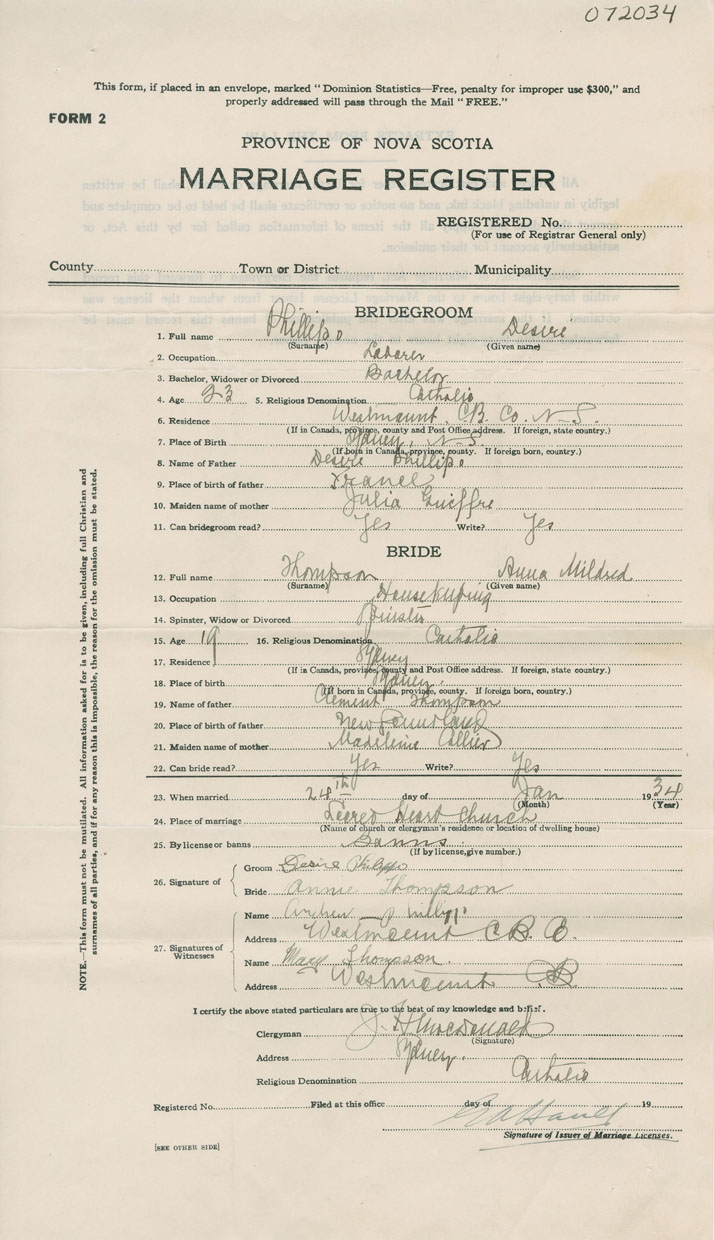 072034
This form, if placed in an envelope, marked "Dominion Statistics—Free, penalty for improper use $300," and
properly addressed will pass through the Mail "FREE."
FORM 2
PROVINCE OF NOVA SCOTIA
MARRIAGE REGISTER
REGISTERED No.
(For use of Registrar General only)
County Town or District Municipality
BRIDEGROOM
1. Full name Phillipo Desire
(Surname) (Given name)
2. Occupation Laborer
3. Bachelor, Widower or Divorced Bachelor
4. Age 23 5. Religious Denomination Catholic
6. Residence Westmount, C.B. Co. N-S.
(If in Canada, province, county and Post Office address. If foreign, state country.)
7. Place of Birth Sydney, N-S.
(If born in Canada, province, county. If foreign born, country.)
8. Name of Father Desire Phillipo
9. Place of birth of father France
10. Maiden name of mother Julia
11. Can bridegroom read? Yes Write? Yes
BRIDE
12. Full name Thompson Anna Mildred
(Surname) (Given name)
13. Occupation Housekeeping
14. Spinster, Widow or Divorced Spinster
15. Age 19 16. Religious Denomination Catholic
17. Residence Sydney
(If in Canada, province, county and Post Office address. If foreign, state country.)
18. Place of birth Sydney.
(If born in Canada, province, county. If foreign born, country.)
19. Name of father Clement Thompson
20. Place of birth of father Newfoundland
21. Maiden name of mother Madeleine Collier
22. Can bride read? Yes Write? Yes
23. When married 24th day of Jan 1934
(Month) (Year)
24. Place of marriage Sacred Heart Church
(Name of church or clergyman's residence or location of dwelling house)
25. By license or banns Banns
(If by license, give number.)
26. Signature of
Groom Desire Philippo
Bride Annie Thompson
27. Signatures of Witnesses
Name
Address Westmount C.B. C.
Name Mary Thompson.
Address Westmount CB
I certify the above stated particulars are true to the best of my knowledge and belief.
Clergyman J. H. MacDonald
(Signature)
Address Sydney.
Religious Denomination Catholic
Registered No. Filed at this office day of 19
Signature of Issuer of Marriage Licenses.
[SEE OTHER SIDE]
NOTE.—This form must not be mutilated. All information asked for is to be given, including full Christian and
surnames of all parties, and if for any reason this is impossible, the reason for the omission must be stated.